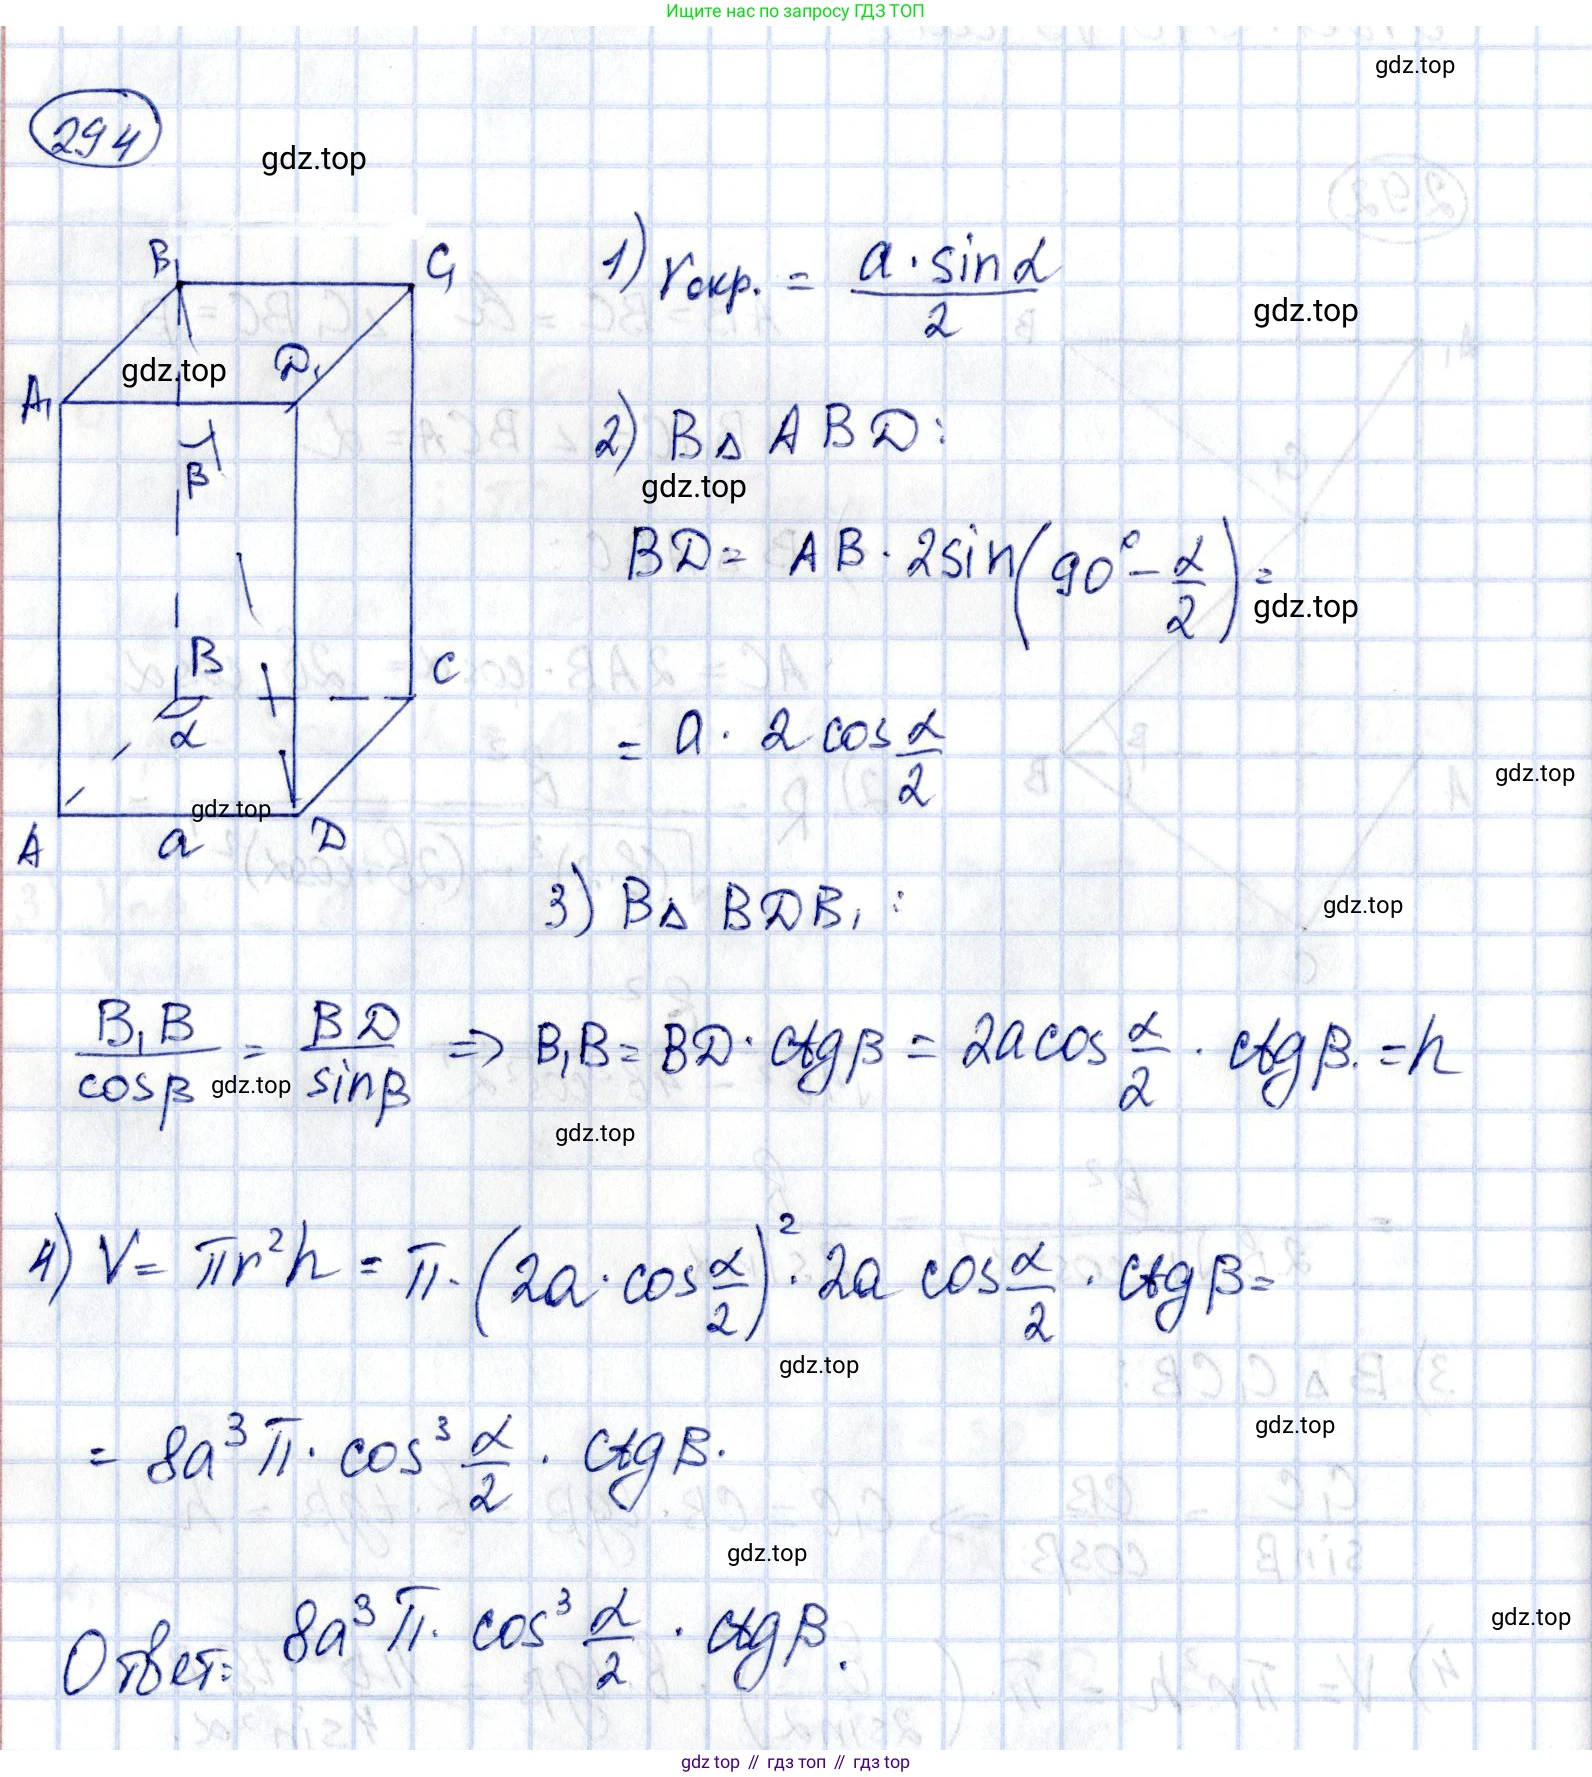 Ищите нас по запросу ГДЗ ТОП
gdz.top
294
gdz.top
B₁ C₁
1) rокр. = a · sin α / 2
gdz.top
gdz.top D₁
A₁
2) В △ ABD:
β
gdz.top
BD = AB · 2sin(90° - α/2) =
gdz.top
B C
α
= a · 2 cos α/2
gdz.top
gdz.top
A a D
3) В △ BDB₁:
gdz.top
B₁B / cos β = BD / sin β ⇒ B₁B = BD · ctg β = 2a cos α/2 · ctg β. = h
gdz.top
gdz.top
4) V = πr²h = π · (2a · cos α/2)² · 2a cos α/2 · ctg β =
gdz.top
gdz.top
= 8a³π · cos³ α/2 · ctg β.
gdz.top
Ответ: 8a³π · cos³ α/2 · ctg β.
gdz.top
gdz.top // гдз топ // гдз top